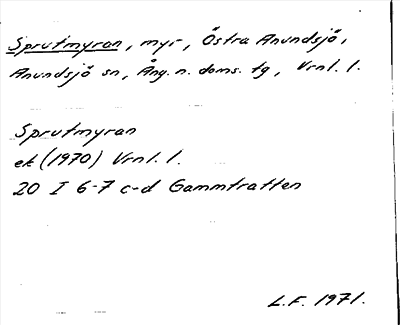 Sprutmyran, myr, Östra Anundsjö,
Anundsjö sn, Ång. n. doms. tg, Vrnl. l.
Sprutmyran
ek (1970) Vrnl. l.
20 I 6-7 c-d Gammtratten
L.F. 1971.